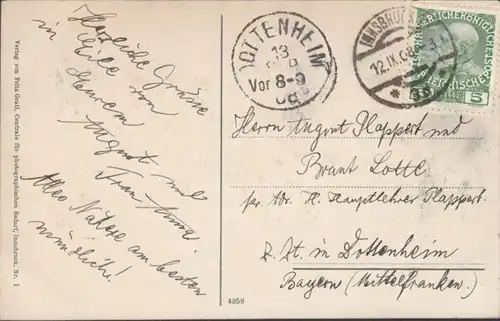 Herzliche Grüsse
in Eile von
Eurem
August und
Frau Anna.
Alles Nähere am besten
mündlich!
Verlag von Fritz Gratl, Centrale für photographischen Bedarf, Innsbruck. Nr. 1
DOTTENHEIM
13
SEP
Vor 8-9
08
INNSBRUCK
12.IX.08
5
Herrn August Klappert und
Braut Lotte
per Adr. H. Hauptlehrer Klappert
z. Zt. in Dottenheim
Bayern (Mittelfranken.)
4259